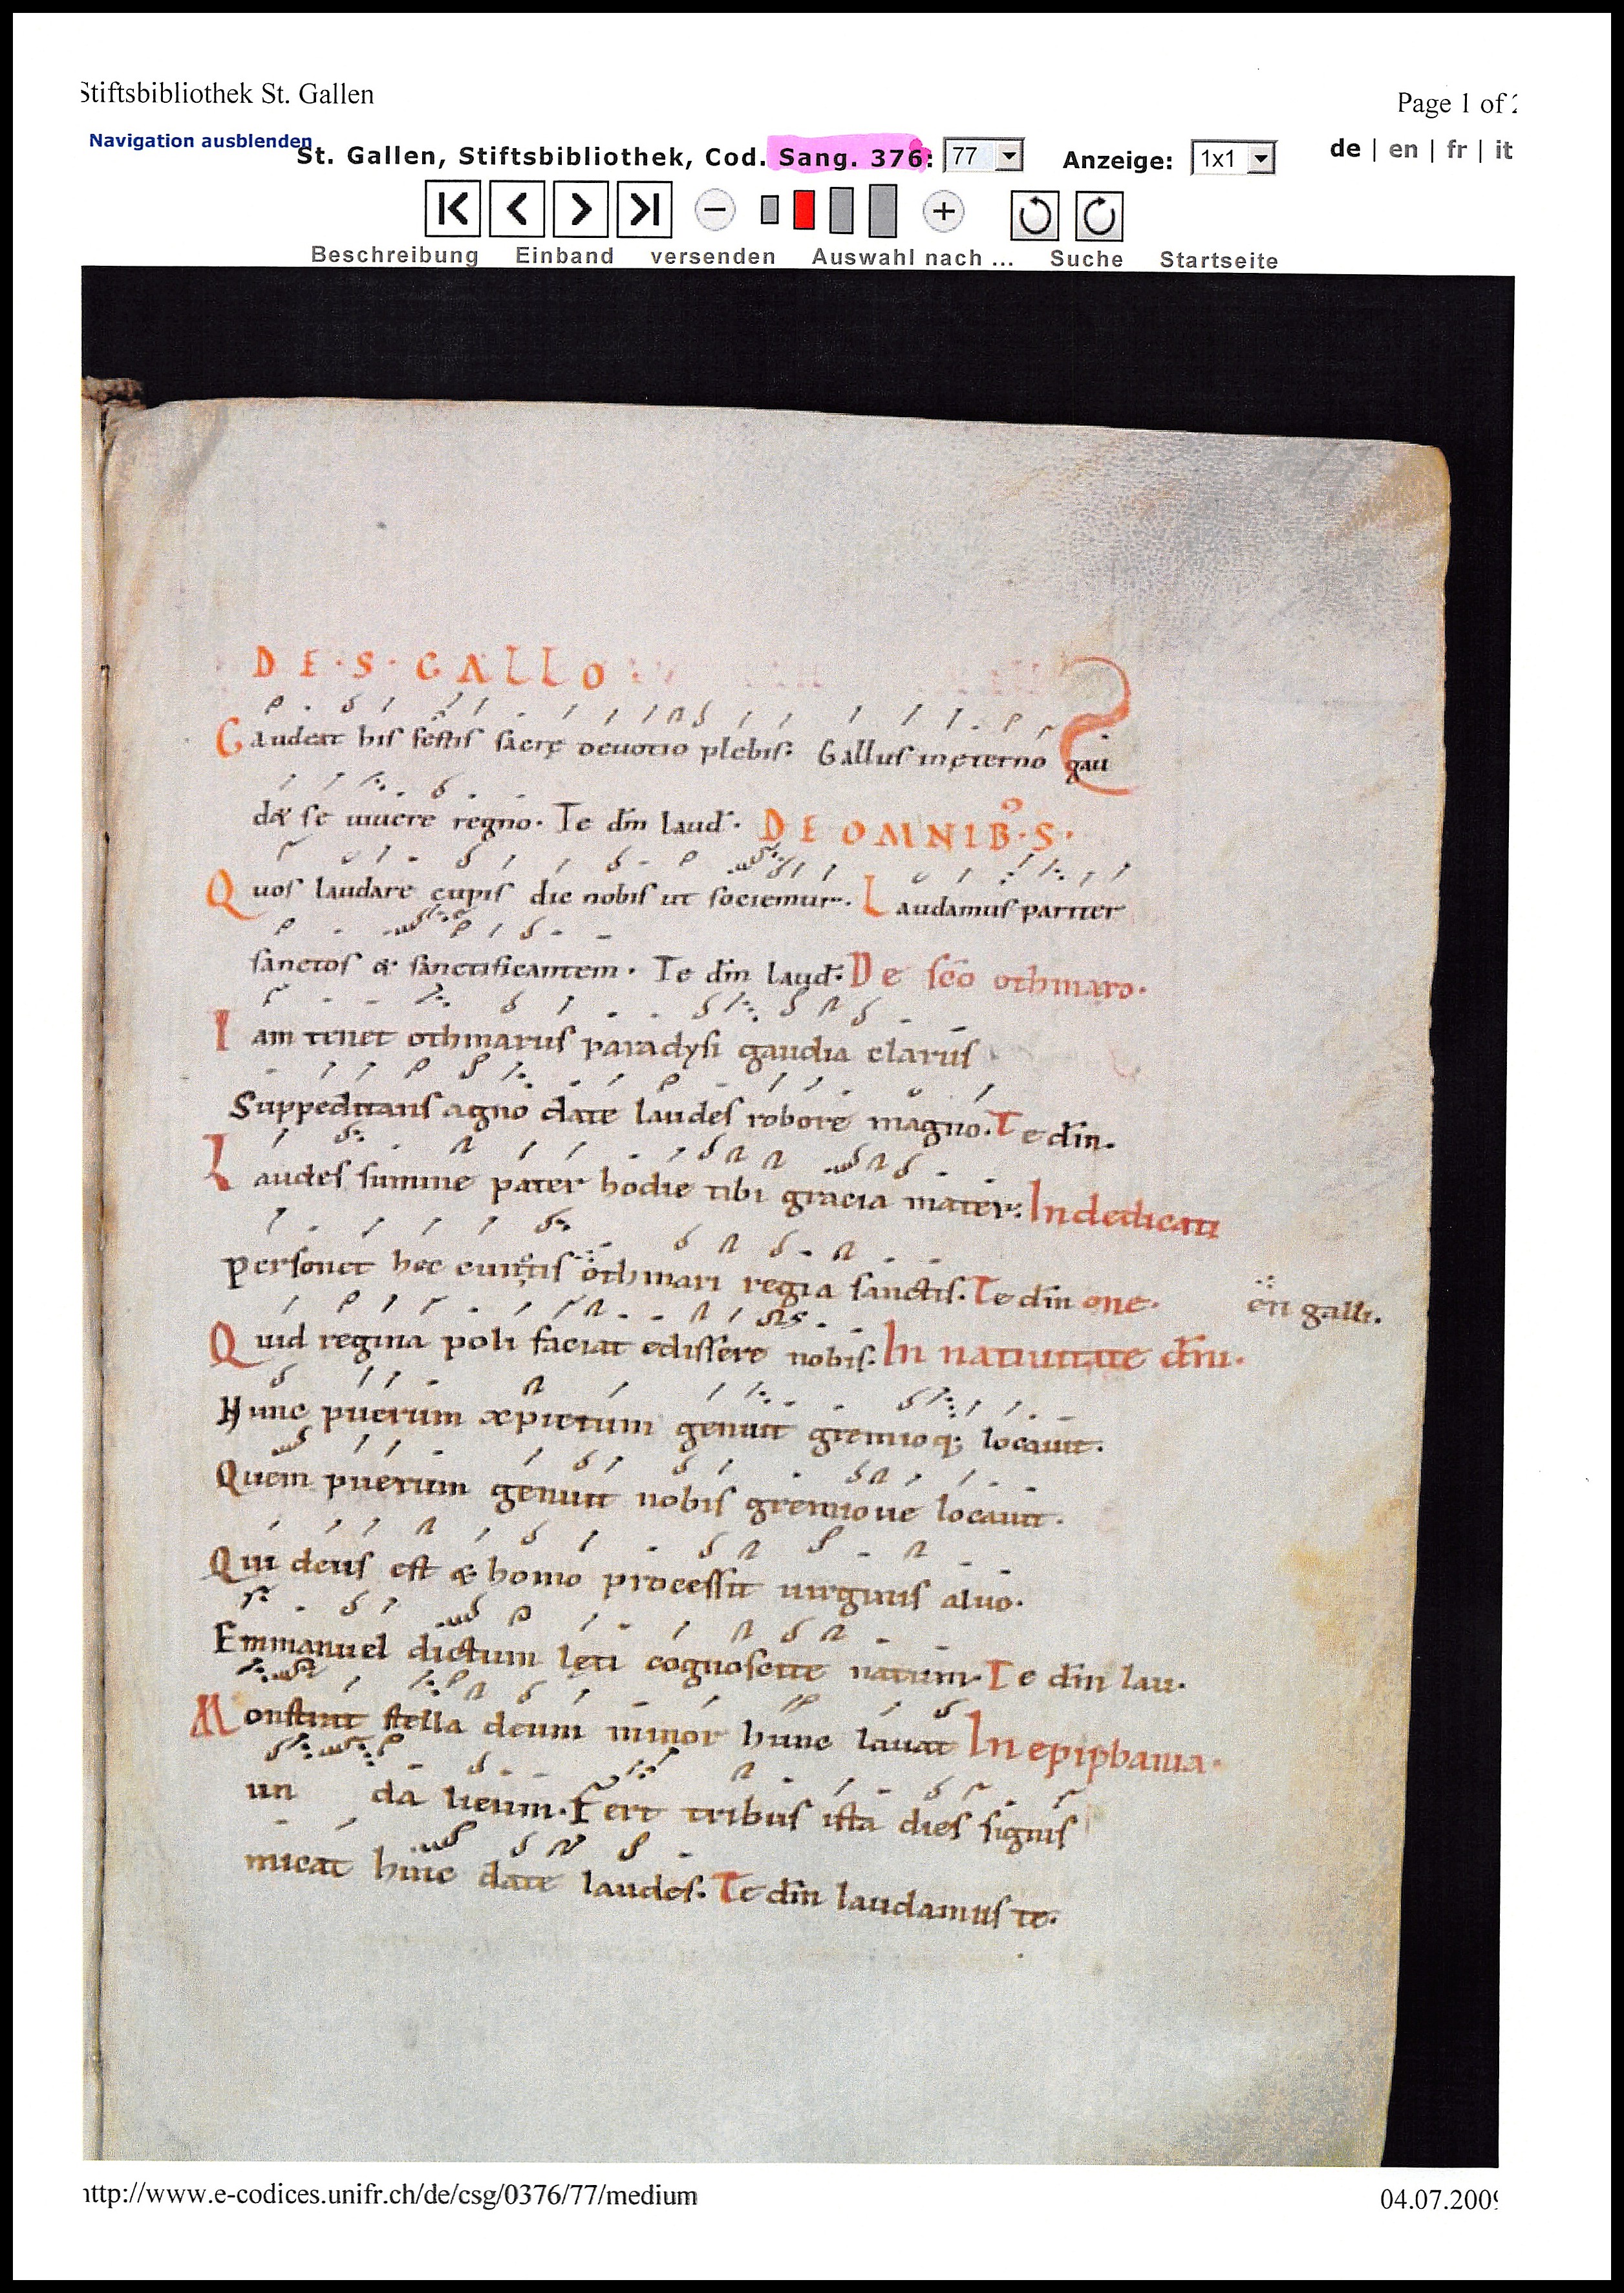 Stiftsbibliothek St. Gallen
Page 1 of 2
Navigation ausblenden
St. Gallen, Stiftsbibliothek, Cod. Sang. 376: 77 Anzeige: 1x1 de | en | fr | it
Beschreibung Einband versenden Auswahl nach ... Suche Startseite
DE·S·GALLO
Gaudeat his festis sacrę deuotio plebis: Gallus in ęterno gau
d& se uiuere regno. Te dm̄ laud. DE OMNIB·S·
Quos laudare cupis dic nobis ut sociemur. Laudamus pariter
sanctos & sanctificantem. Te dm̄ laud: De sc̄o othmaro.
Iam tenet othmarus paradysi gaudia clarus
Suppeditans agno date laudes robore magno. Te dm̄.
Laudes summe pater hodie tibi gracia mater: In dedicati
personet hec cunctis othmari regia sanctis. Te dm̄ one. galli.
Quid regina poli faciat edissere nobis: In natiuitate dn̄i.
Hunc puerum genuit gremioq; locauit.
Quem puerum genuit nobis gremioue locauit.
Qui deus est & homo processit uirginis aluo.
Emmanuel dictum lęti cognoscite natum. Te dm̄ lau.
Monstrat stella deum minor hunc lauat In epiphania.
un da lieum. Fert tribus ista dies signis
micat hinc date laudes. Te dm̄ laudamus te.
http://www.e-codices.unifr.ch/de/csg/0376/77/medium
04.07.2009